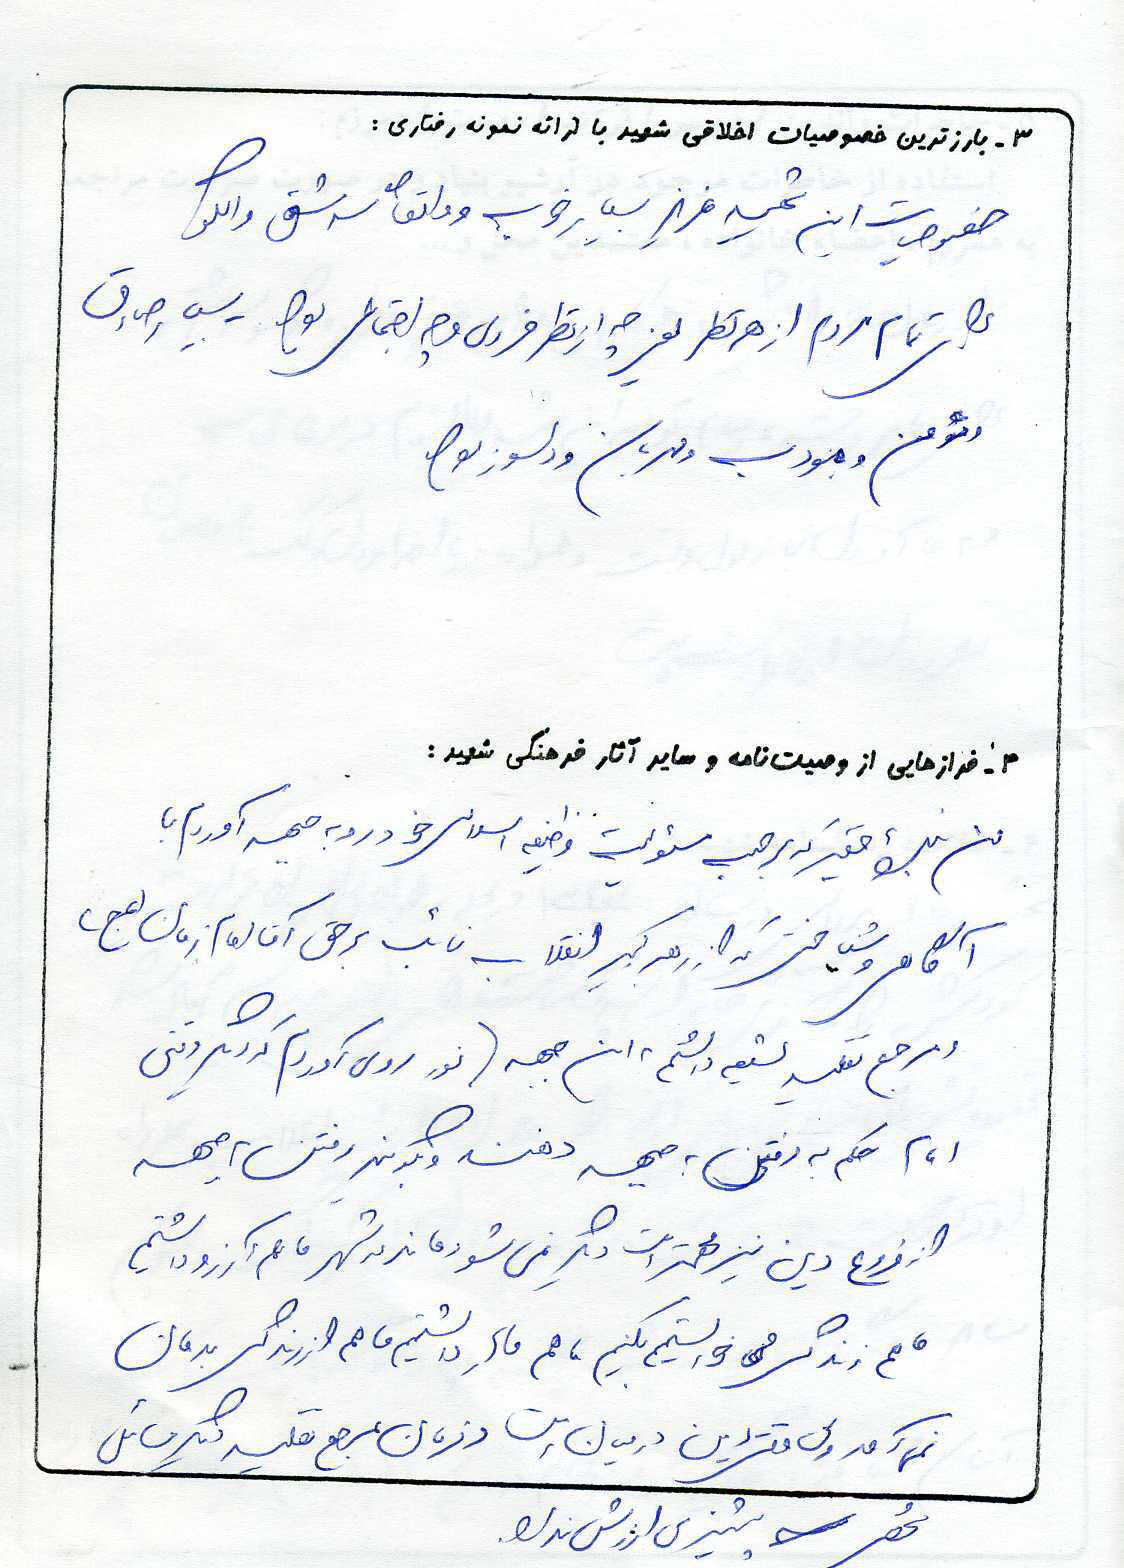 ۳ـ بارزترین خصوصیات اخلاقی شهید با ارائه نمونه رفتاری :
خصوصیات این شهید عزیز بسیار خوب و واقعاً سرمشق و الگو
برای تمام مردم از هر نظر یعنی چه از نظر فردی و چه اجتماعی بود. بسیار صادق
و مؤمن و مؤدب و مهربان و دلسوز بود
۴ـ فرازهایی از وصیت‌نامه و سایر آثار فرهنگی شهید :
من بنده حقیر که برحسب مسئولیت و وظیفه اسلامی خود رو به جبهه آوردم با
آگاهی و شناختی که از رهبر کبیر انقلاب نائب برحق آقا امام زمان (عج)
و مرجع تقلید شیعه داشتم به این جبهه نور روی آوردم که دیگر وقتی
امام حکم به رفتن به جبهه دهند و بگویند رفتن به جبهه
از فروع دین نیز مهمتر است دیگر نمی شود ماند در شهر ما هم آرزو داشتیم
ما هم زندگی می خواستیم بکنیم ما هم مادر داشتیم ما هم از زندگی بدمان
نمی آمد ولی وقتی دین در میان است و فرمان مرجع تقلید دیگر مسائل
پشیزی ارزش ندارد.